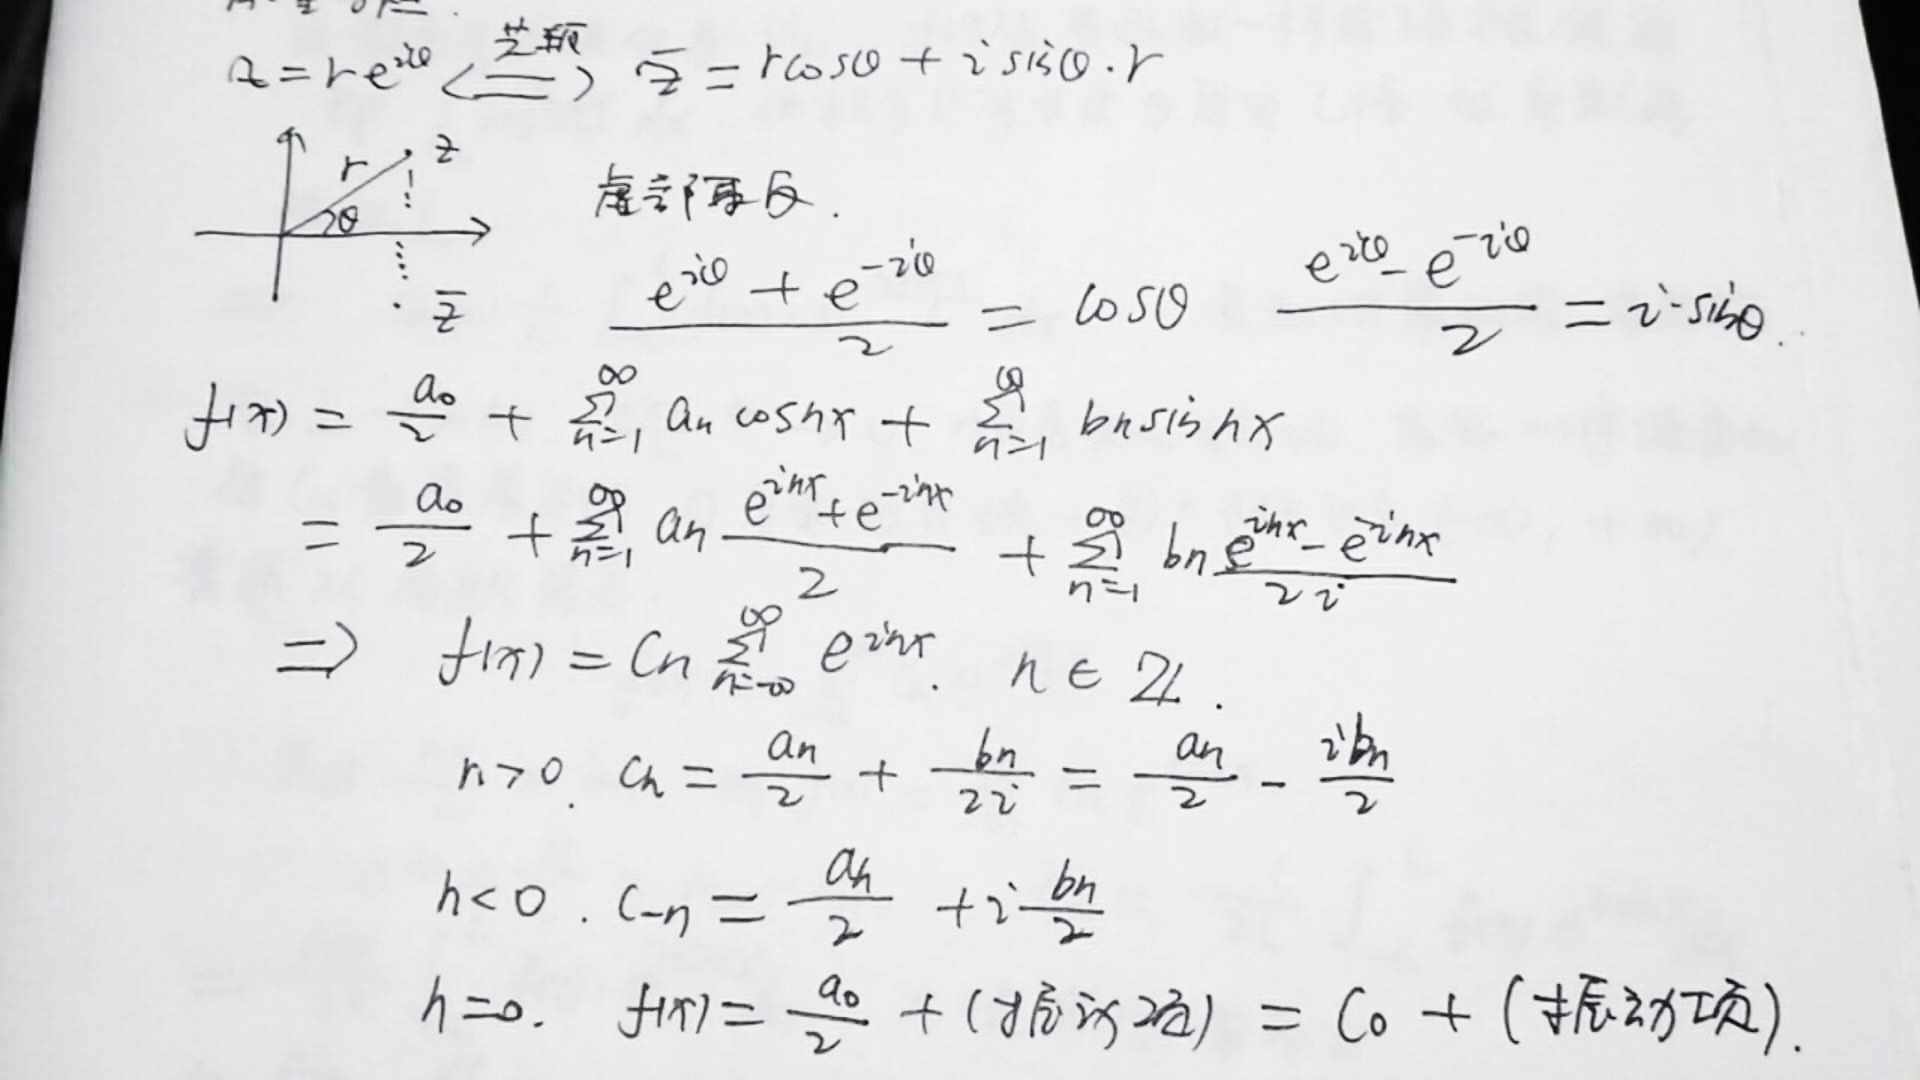 z = re^{iθ} <=> z̄ = rcosθ + i sinθ · r
r z
θ
虚部取反.
z̄
\frac{e^{iθ} + e^{-iθ}}{2} = cosθ \frac{e^{iθ} - e^{-iθ}}{2} = i·sinθ.
f(x) = \frac{a_0}{2} + \sum_{n=1}^{∞} a_n cosnx + \sum_{n=1}^{∞} b_n sin nx
= \frac{a_0}{2} + \sum_{n=1}^{∞} a_n \frac{e^{inx} + e^{-inx}}{2} + \sum_{n=1}^{∞} b_n \frac{e^{inx} - e^{-inx}}{2i}
⇒ f(x) = C_n \sum_{n=-∞}^{∞} e^{inx}. n ∈ ℤ.
n>0. C_n = \frac{a_n}{2} + \frac{b_n}{2i} = \frac{a_n}{2} - \frac{ib_n}{2}
n<0. C_{-n} = \frac{a_n}{2} + i\frac{b_n}{2}
n=0. f(x) = \frac{a_0}{2} + (振动项) = C_0 + (振动项).